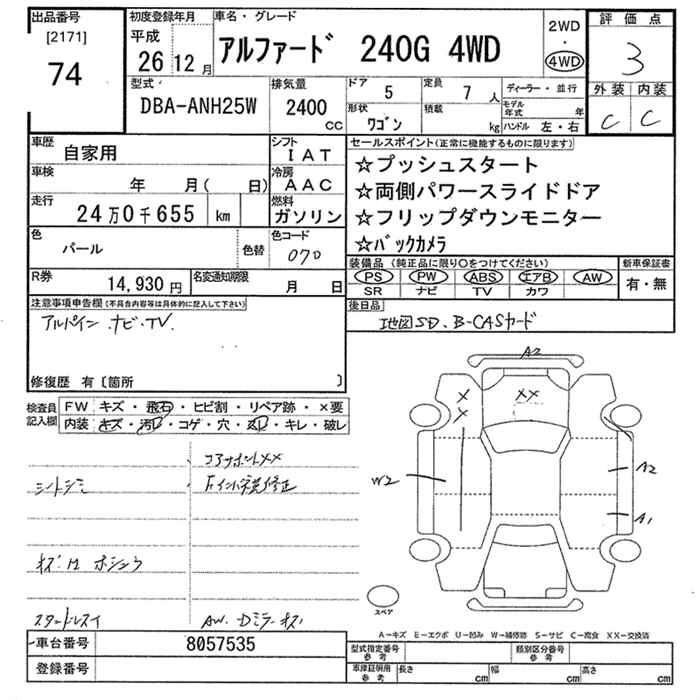 出品番号
[2171]
74
初度登録年月
平成
26 12月
車名・グレード
アルファード 240G 4WD
2WD
・
4WD
評価点
3
外装 内装
C C
型式
DBA-ANH25W
排気量
2400
CC
ドア
5
定員
7人
形状
ワゴン
積載
kg
ディーラー・並行
モデル年式 年
ハンドル 左・右
車歴
自家用
シフト
IAT
車検
年 月( 日)
冷房
AAC
走行
24万0千655 km
燃料
ガソリン
色
パール
色替
色コード
070
R券
14,930円
名変通知期限
月 日
セールスポイント(正常に機能するものに限ります)
☆プッシュスタート
☆両側パワースライドドア
☆フリップダウンモニター
☆バックカメラ
装備品(純正品に限り○をつけてください)
PS PW ABS エアB AW
SR ナビ TV カワ
新車保証書
有・無
後日品
地図SD、B-CASカード
注意事項申告欄(不具合内容等は具体的に記入して下さい)
アルパイン ナビ・TV
修復歴 有〔箇所 〕
検査員記入欄
FW キズ・飛石・ヒビ割・リペア跡・×要
内装 キズ・汚レ・コゲ・穴・・キレ・破レ
コアサポートXX
シートシミ
修正
スタッドレス
AW.Dミラーキズ
A2
X
X
XX
W2
A2
A1
スペア
A−キズ E−エクボ U−凹み W−補修跡 S−サビ C−腐食 XX−交換済
車台番号
8057535
登録番号
型式指定番号
参考
類別区分番号
参考
車庫証明用
参考
長さ cm 幅 cm 高さ cm